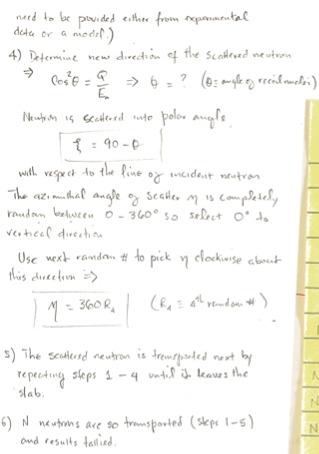 need to be provided either from experimental
data or a model.)
4) Determine new direction of the scattered neutron
⇒ Cos²θ = Q/Eₙ ⇒ θ = ? (θ = angle of recoil nucleus)
Neutron is scattered into polar angle
ξ = 90 - θ
with respect to the line of incident neutron
The azimuthal angle of scatter η is completely
random between 0 - 360° so select 0° to
vertical direction
Use next random # to pick η clockwise about
this direction ⇒
η = 360 R₄ (R₄ ≡ 4th random #)
5) The scattered neutron is transported next by
repeating steps 1 - 4 until it leaves the
slab.
6) N neutrons are so transported (steps 1-5)
and results tallied.